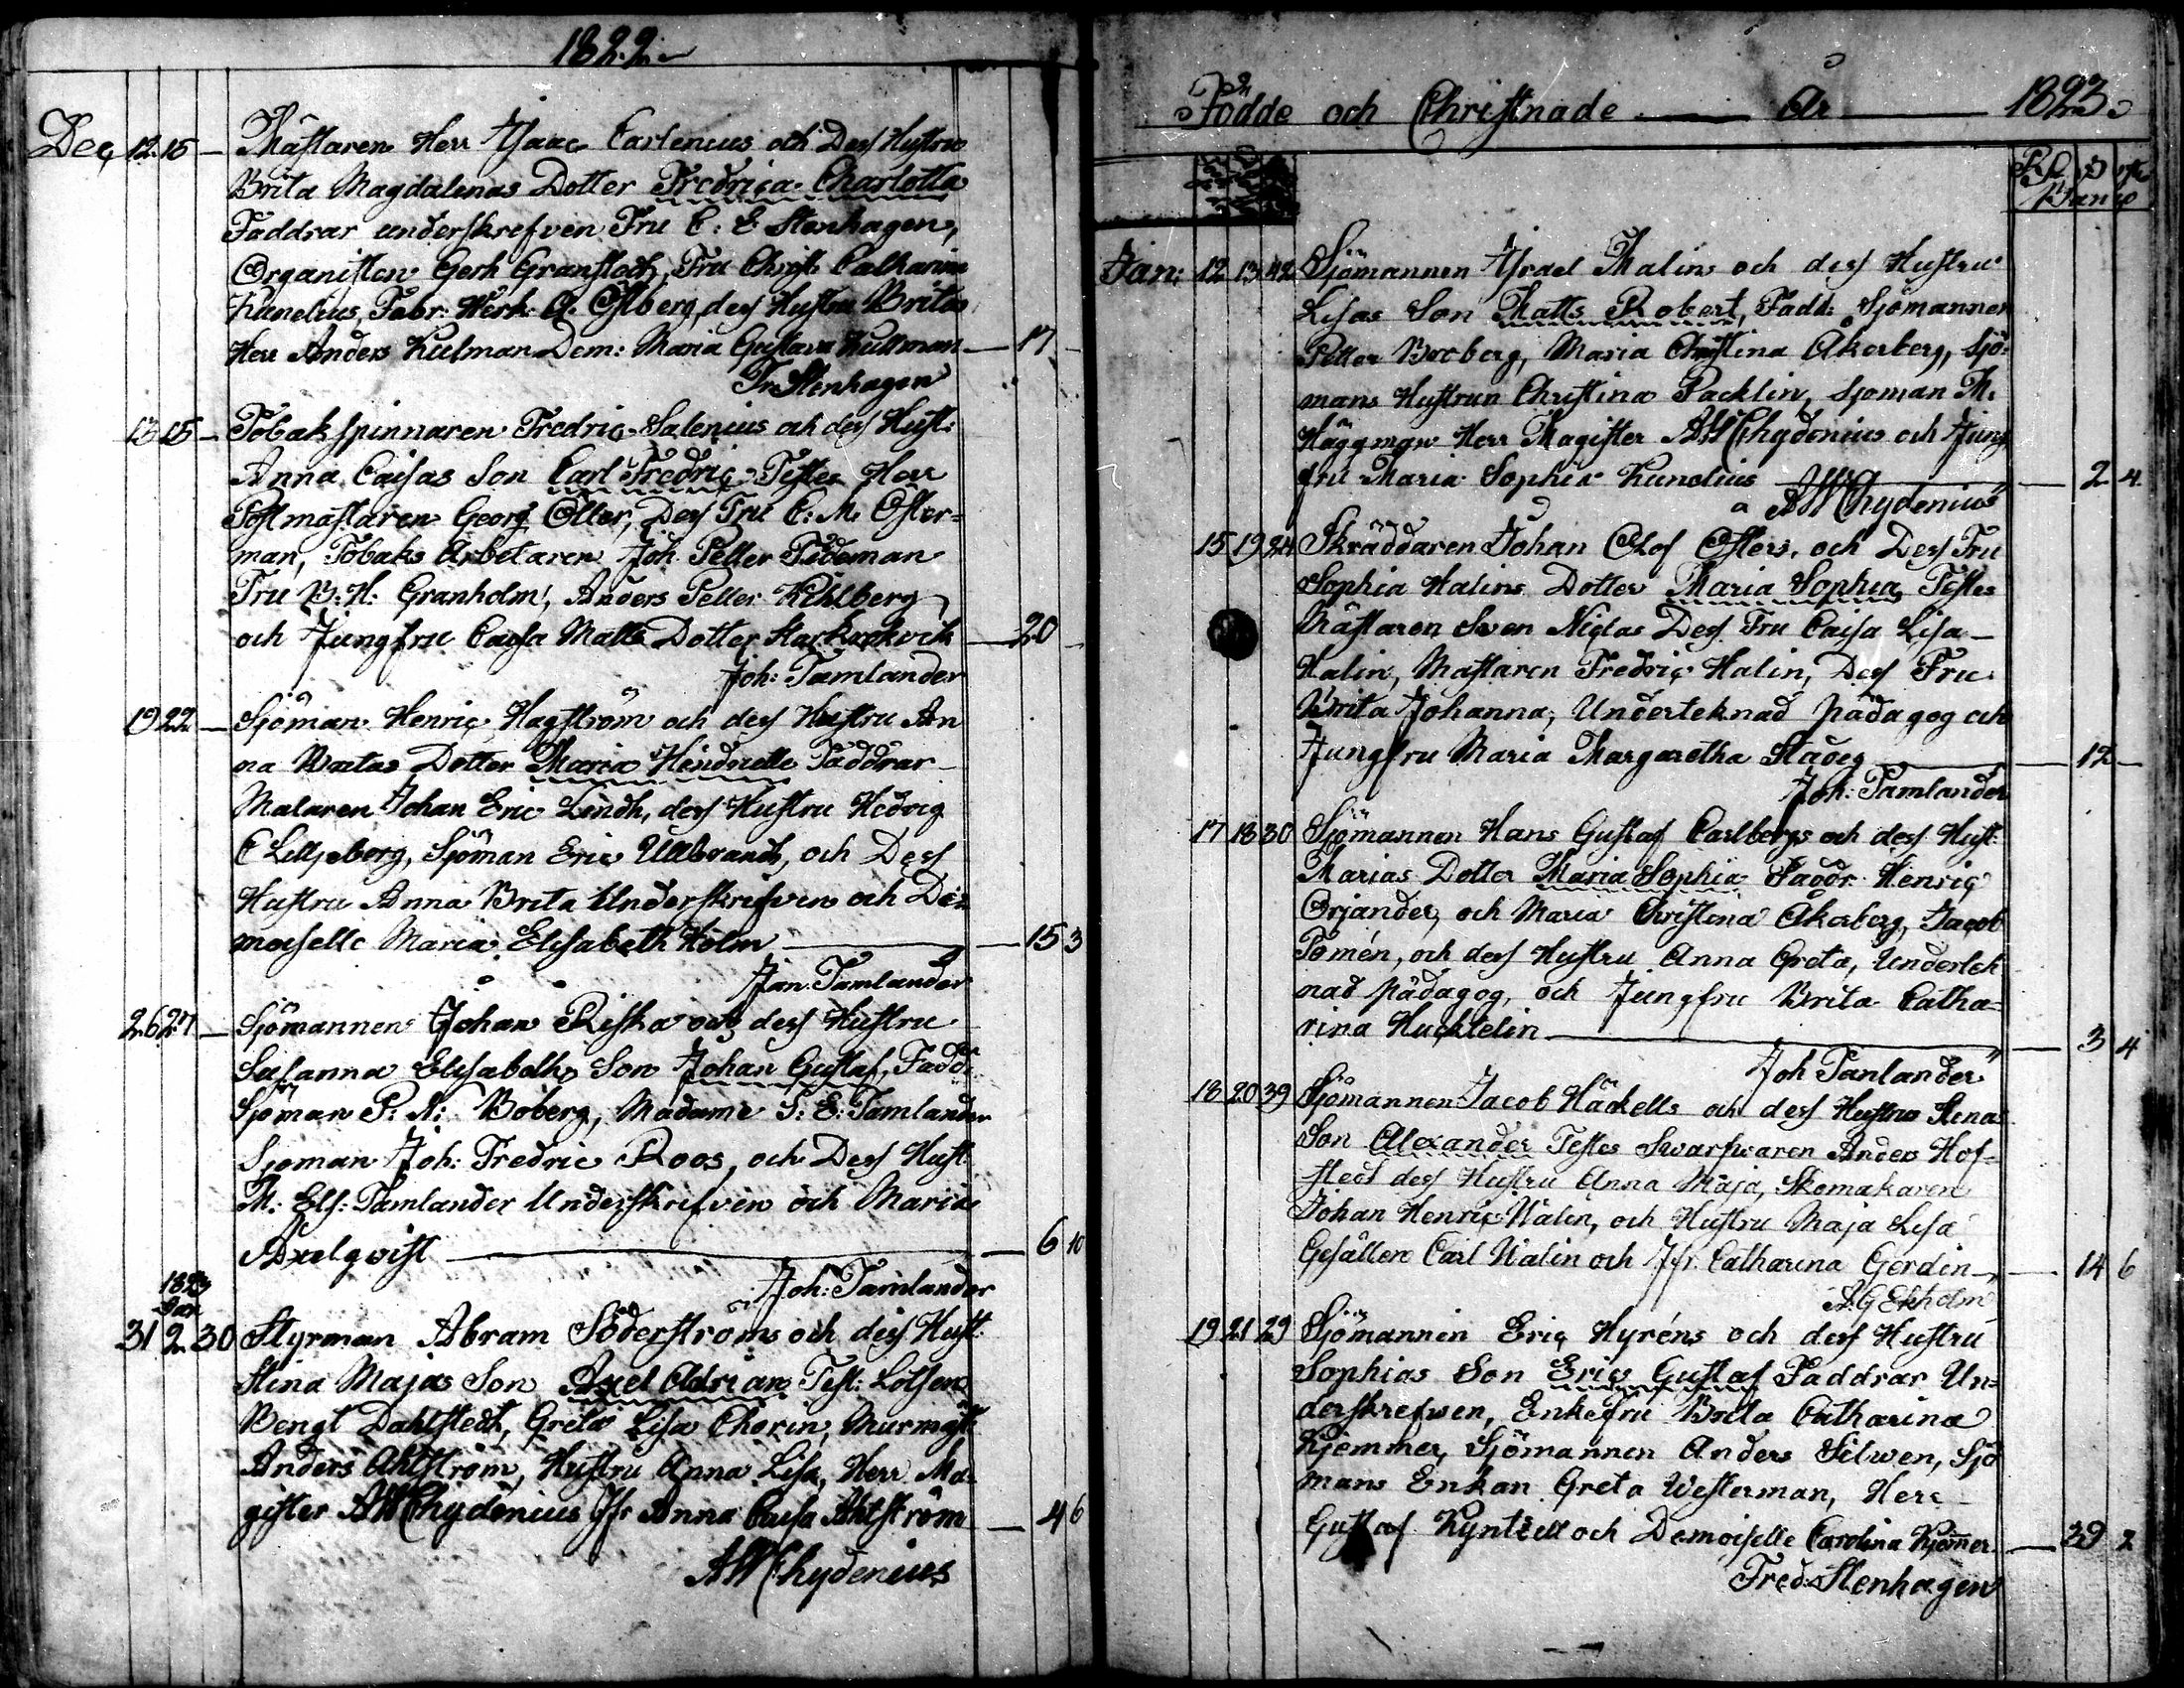 1822
Dec 12 15 — Mästaren Herr Isaac Carlenius och Dess Hustru
Brita Magdalenas Dotter Fredrica Charlotta
Faddrar underskrefven Fru C: E Stenhagen,
Organisten Gerh Granstedt, Fru Christ: Catharina
Kunelius, Fabr: Werk: A. Östberg, dess Hustru Brita
Herr Anders Kulman Dem: Maria Gustava Kullman — 17 —
Fr Stenhagen
13 15 — Tobakspinnaren Fredric Salenius och dess Hust:
Anna Caisas Son Carl Fredric Testes Herr
Postmästaren Georg Öller, Dess Fru C: M. Öster=
man, Tobaks Arbetaren Joh Petter Tideman
Fru B: H: Granholm, Anders Petter Kihlberg
och Jungfru Caisa Matts Dotter — 20 —
Joh: Tamlander
19 22 — Sjöman Henric Hagström och dess Hustru An
na Beatas Dotter Maria Hendrette Faddrar
Målaren Johan Eric Lindh, dess Hustru Hedvig
C Lilljeborg, Sjöman Eric Ullbrandt, och Dess
Hustru Anna Brita Underskrifven och De=
moiselle Maria Elisabeth Holm — 15 3
Jon Tamlander
26 27 — Sjömannen Johan Riska och dess Hustru
Susanna Elisabeths Son Johan Gustaf, Fadd:
Sjöman P: N: Boberg, Madame S: E: Tamlander
Sjöman Joh: Fredric Roos, och Dess Hust
M: Els: Tamlander Underskrifven och Maria
Axelqvist — 6 10
Joh: Tamlander
1823
Jan
31 2 30 Styrman Abram Söderströms och dess Hust:
Stina Majas Son Axel Adrian Test: Lotsen
Bengt Dahlstedt, Greta Lisa Chorin, Murmäst:
Anders Ahlström, Hustru Anna Lisa, Herr Ma=
gister AW Chydenius Jfr Anna Caisa Ahlström — 4 6
AW Chydenius
Födde och Christnade — År — 1823
Banco
Jan: 12 13 42 Sjömannen Israel Malins och dess Hustru
Lisas Son Matts Robert, Fadd: Sjömannen
Petter Boberg, Maria Christina Åkerberg, Sjö=
mans Hustrun Christina Packlin, Sjöman M.
Häggman Herr Magister AW Chydenius och Jung
fru Maria Sophia Kunelius — 2 4
AW Chydenius
15 19 24 Skräddaren Johan Olof Östers, och Dess Fru
Sophia Halins Dotter Maria Sophia, Testes
Mästaren Sven Niclas Dess Fru Caisa Lisa —
Halin, Mästaren Fredric Halin, Dess Fru
Brita Johanna, Underteknad pädagog och
Jungfru Maria Margaretha Stadig — 12 —
Joh: Tamlander
17 18 30 Sjömannen Hans Gustaf Carlbergs och dess Hust:
Marias Dotter Maria Sophia Faddr: Henric
Orjander, och Maria Christina Åkerberg, Jacob
Tomén, och dess Hustru Anna Greta, Undertek
nad pädagog, och Jungfru Brita Catha=
rina Hucktelin — 3 4
Joh Tamlander
18 20 39 Sjömannen Jacob Häckells och dess Hustru Stenas
Son Alexander Testes Swarfvaren Anders Hof=
stedt dess Hustru Anna Maja, Skomakaren
Johan Henric Walin, och Hustru Maja Lisa
Gesällen Carl Walin och Jfr. Catharina Gerdin — 14 6
A G Ekholm
19 21 29 Sjömannen Eric Hyréns och dess Hustru
Sophias Son Eric Gustaf Faddrar Un=
derskrefven, Enkefru Brita Catharina
Kjemmer, Sjömannen Anders Silwen, Sjö
mans Enkan Greta Westerman, Herr
Gustaf Kyntzell och Demoiselle Carolina Kjemmer — 39 2
Fred: Stenhagen